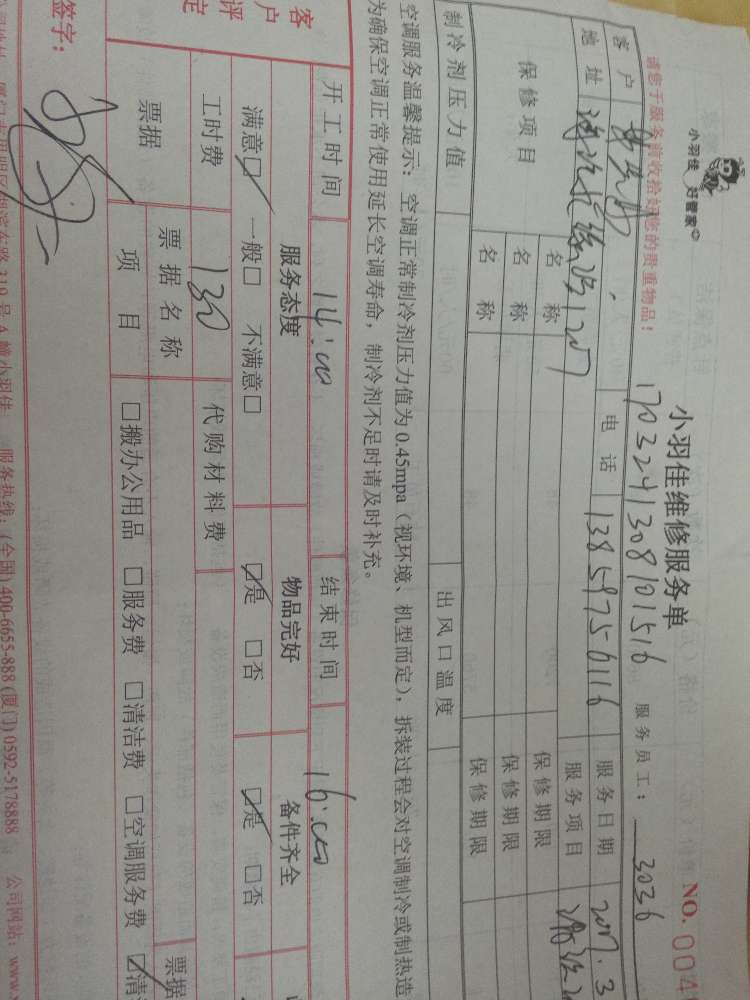 小羽佳 好管家
小羽佳维修服务单
NO. 004
1703241308101516 服务员工： 3036
请您于服务前收拾好您的贵重物品！
客户 电话 13859750116 服务日期 2017.3
地址 1207 服务项目
保修项目 名称 保修期限
名称 保修期限
名称 保修期限
制冷剂压力值 出风口温度
空调服务温馨提示：空调正常制冷剂压力值为0.45mpa（视环境、机型而定），拆装过程会对空调制冷或制热造
为确保空调正常使用延长空调寿命，制冷剂不足时请及时补充。
开工时间 14:00 结束时间 16:00
客户评定 服务态度 物品完好 备件齐全
满意☑ 一般□ 不满意□ ☑是 □否 ☑是 □否
工时费 130 代购材料费
票据 票据名称 票据
项目 □搬办公用品 □服务费 □清洁费 □空调服务费 ☑清
签字：
319号A幢小羽佳 服务热线：(全国)400-6655-888 (厦门)0592-5178888 公司网站：www.